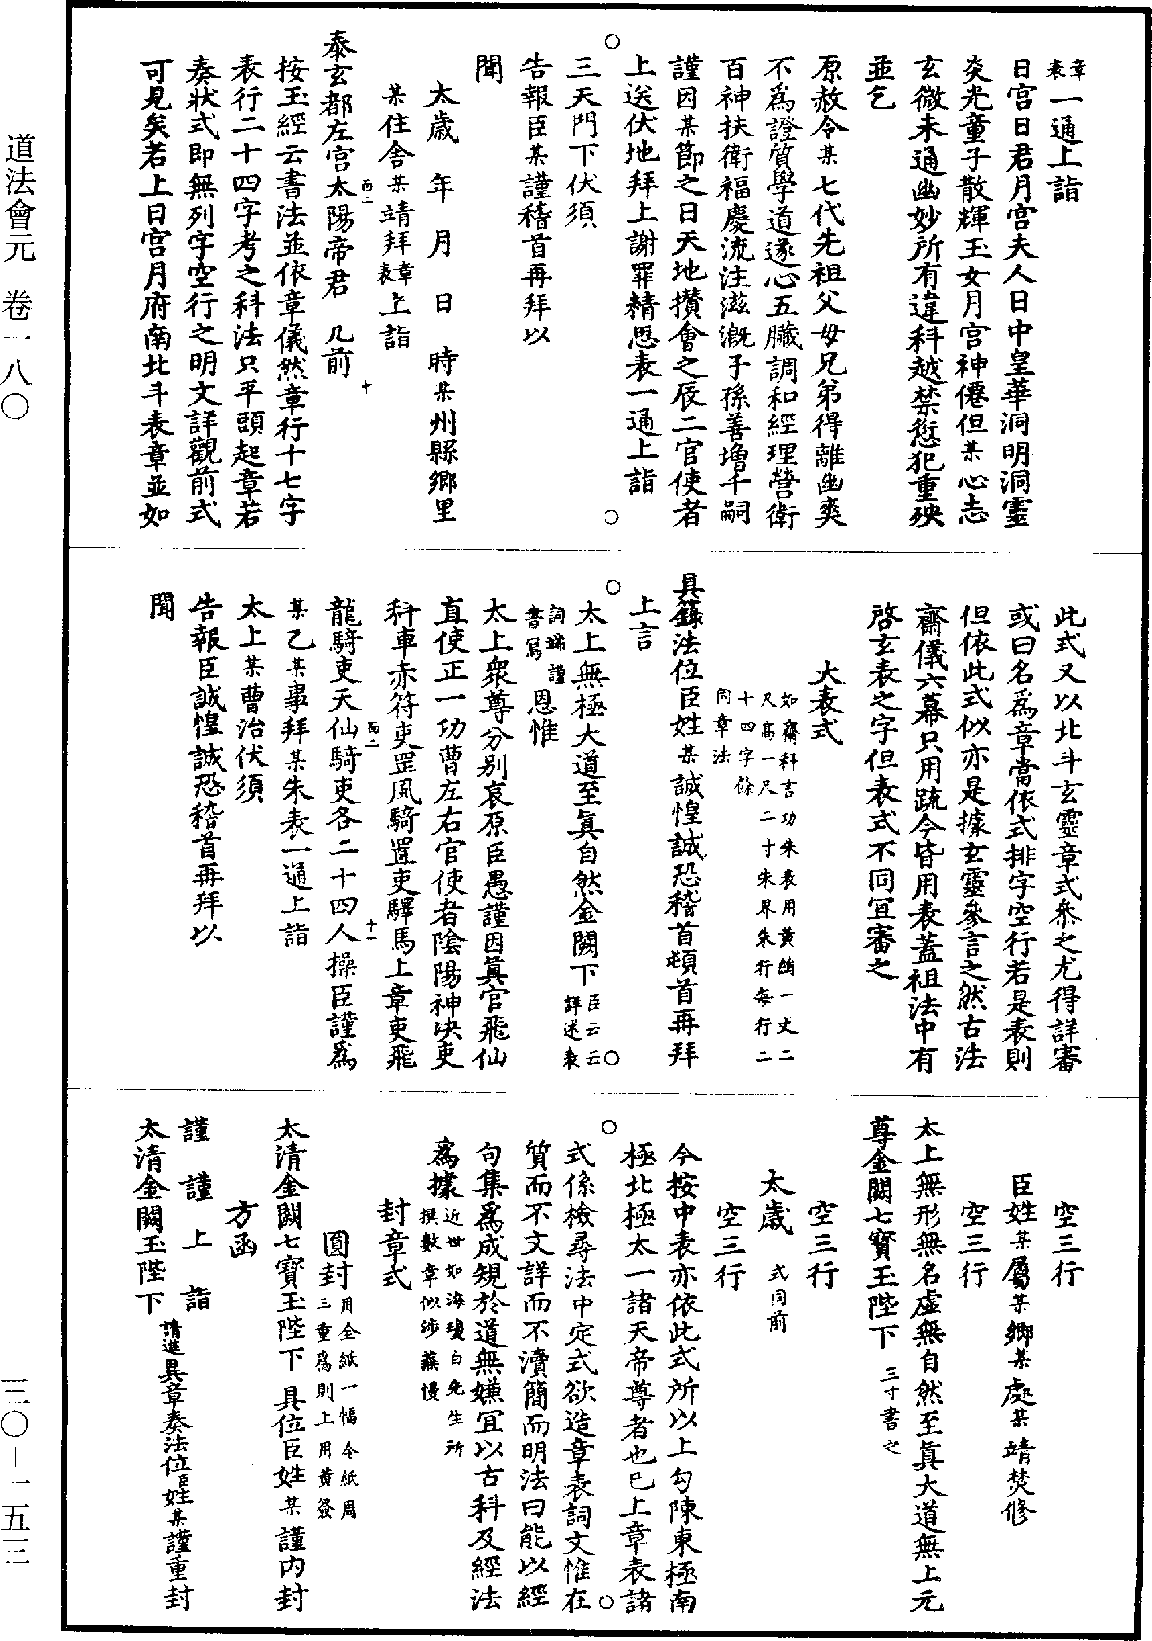 道法會元　卷一八〇
三〇—一五三
章表一通上詣
日宮日君月宮夫人日中皇華洞明洞靈
炎光童子散輝玉女月宮神僊但某心志
玄微未通幽妙所有違科越禁愆犯重殃
並乞
原赦令某七代先祖父母兄弟得離幽爽
不爲證質學道遂心五臟調和經理營衛
百神扶衛福慶流注滋漑子孫善增千嗣
謹因某節之日天地攢會之辰二官使者
上送伏地拜上謝罪精思表一通上詣
三天門下伏須
告報臣某謹稽首再拜以
聞
太歲　年　月　日　時某州縣鄉里
某住舍某靖拜章表上詣
泰玄都左宮太陽帝君　几前
西二　十
按玉經云書法並依章儀然章行十七字
表行二十四字考之科法只平頭起章若
奏狀式即無列字空行之明文詳觀前式
可見矣若上日宮月府南北斗表章並如
此式又以北斗玄靈章式叅之尤得詳審
或曰名爲章當依式排字空行若是表則
但依此式似亦是據玄靈參言之然古法
齋儀六幕只用疏今皆用表蓋祖法中有
啓玄表之字但表式不同宜審之
大表式
如齋科言功朱表用黃綃一丈二
尺高一尺二寸朱界朱行每行二
十四字餘
同章法
具籙法位臣姓某誠惶誠恐稽首頓首再拜
上言
太上無極大道至眞自然金闕下臣云云詳述表
詞端謹書寫恩惟
太上衆尊分别哀原臣愚謹因眞官飛仙
直使正一功曹左右官使者陰陽神决吏
科車赤符吏罡風騎置吏驛馬上章吏飛
西二　十一
龍騎吏天仙騎吏各二十四人操臣謹爲
某乙某事拜某朱表一通上詣
太上某曹治伏須
告報臣誠惶誠恐稽首再拜以
聞
空三行
臣姓某屬某鄉某處某靖焚修
空三行
太上無形無名虛無自然至眞大道無上元
尊金闕七寶玉陛下　三寸書之
空三行
太歲　式同前
空三行
今按中表亦依此式所以上勾陳東極南
極北極太一諸天帝尊者也已上章表諸
式係檢尋法中定式欲造章表詞文惟在
質而不文詳而不瀆簡而明法曰能以經
句集爲成規於道無嫌宜以古科及經法
爲據近世如海瓊白先生所撰數章似涉蕪慢
封章式
圓封用全紙一幅令紙周三重爲則上用黄簽
太清金闕七寶玉陛下具位臣姓某謹内封
方函
謹　謹　上　詣
太清金闕玉陛下請進異章奏法位臣姓某謹重封